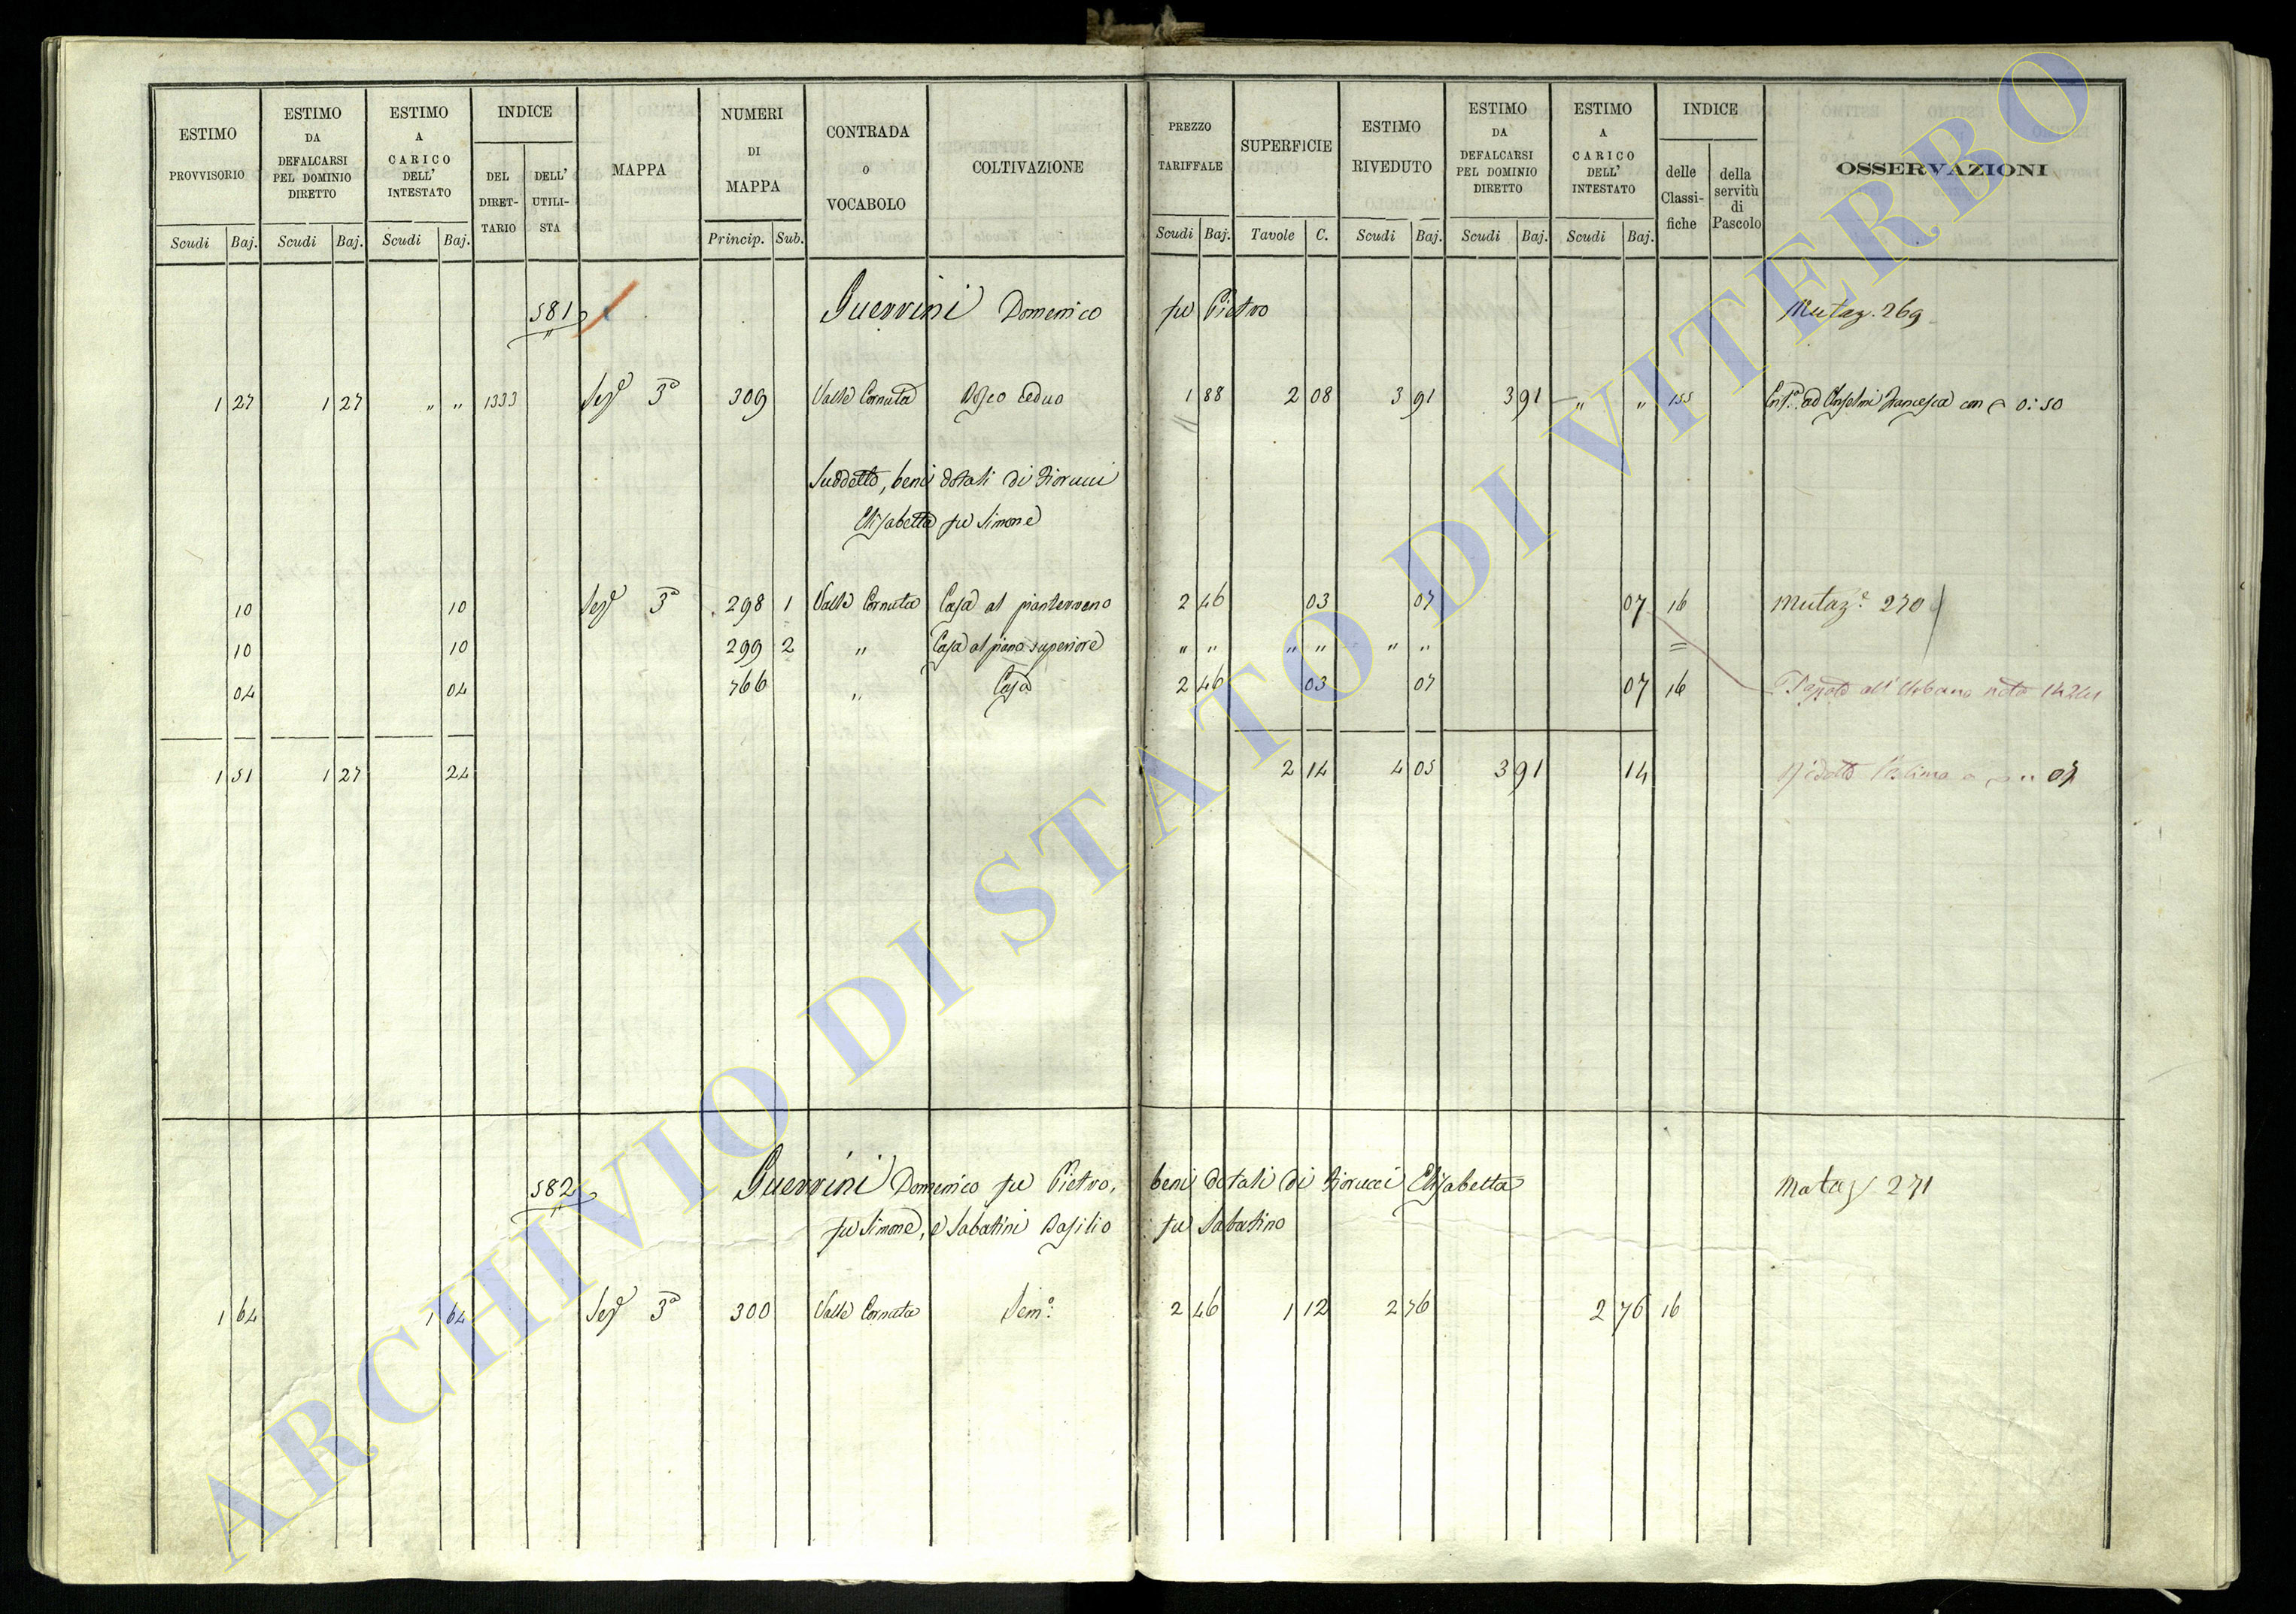 ESTIMO PROVVISORIO Scudi Baj. | ESTIMO DA DEFALCARSI PEL DOMINIO DIRETTO Scudi Baj. | ESTIMO A CARICO DELL' INTESTATO Scudi Baj. | INDICE DEL DIRET-TARIO | DELL' UTILI-STA | MAPPA | NUMERI DI MAPPA Princip. Sub. | CONTRADA O VOCABOLO | COLTIVAZIONE | PREZZO TARIFFALE Scudi Baj. | SUPERFICIE Tavole C. | ESTIMO RIVEDUTO Scudi Baj. | ESTIMO DA DEFALCARSI PEL DOMINIO DIRETTO Scudi Baj. | ESTIMO A CARICO DELL' INTESTATO Scudi Baj. | INDICE delle Classi-fiche | della servitù di Pascolo | OSSERVAZIONI
581 Guerrini Domenico fu Pietro Mutaz. 269
1 27 1 27 " " 1333 Sez.e 3a 309 Valle Cornuta Bosco ceduo 1 88 2 08 3 91 3 91 " " 155 ad Anselmi Francesca con 0:50
Suddetto, beni dotali di Fiorucci
Elisabetta fu Simone
10 10 Sez.e 3a 298 1 Valle Cornuta Casa al pianterreno 2 46 03 07 07 16 Mutaz.e 270
10 10 299 2 " Casa al piano superiore " " " " " " =
04 04 766 " Casa 2 46 03 07 07 16 all'Urbano
1 51 1 27 24 2 14 4 05 3 91 14 l'estimo a " 07
582 Guerrini Domenico fu Pietro, beni dotali di Fiorucci Elisabetta Mutaz 271
fu Simone, e Sabatini Basilio fu Sabatino
1 64 1 64 Sez.e 3a 300 Valle Cornuta Sem.o 2 46 1 12 2 76 2 76 16
ARCHIVIO DI STATO DI VITERBO